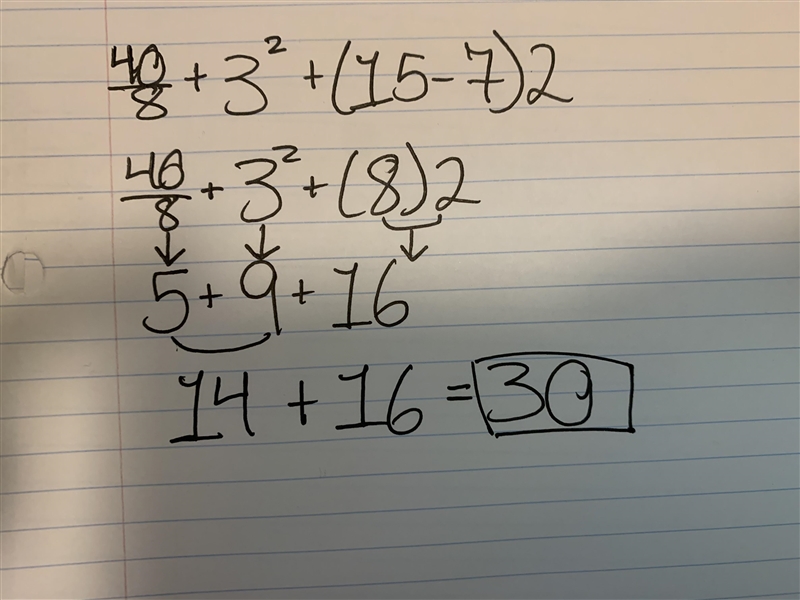 40/8 + 3² + (15 - 7)2
40/8 + 3² + (8)2
5 + 9 + 16
14 + 16 = 30